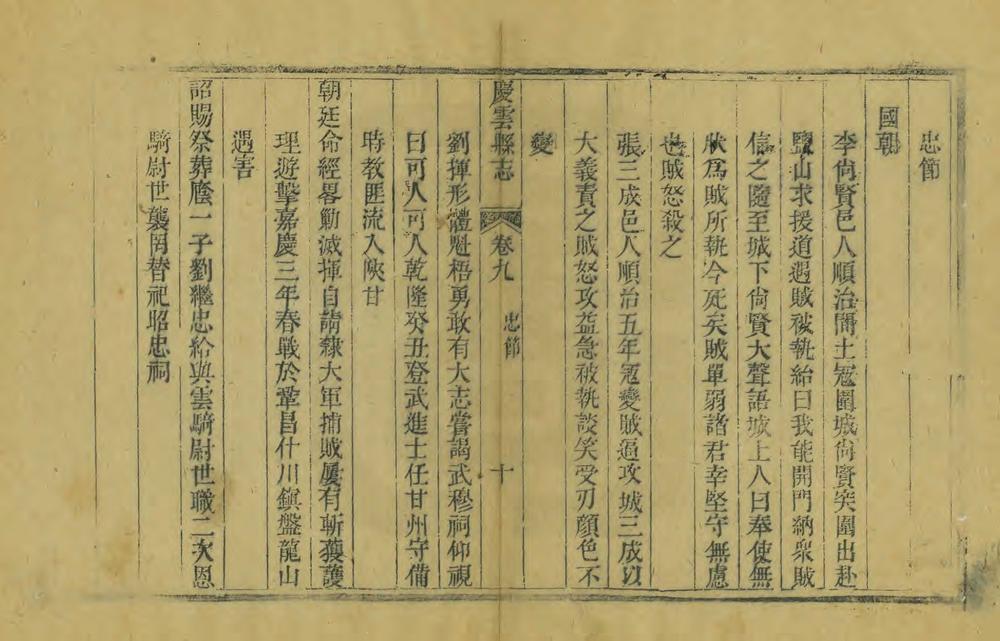 忠節
國朝
李尙賢邑人順治間土冦圍城尙賢突圍出赴
鹽山求援道遇賊被執紿曰我能開門納衆賊
信之隨至城下尙賢大聲語城上人曰奉使無
狀爲賊所執今死矣賊單弱諸君幸堅守無慮
也賊怒殺之
張三成邑人順治五年冦變賊逼攻城三成以
大義責之賊怒攻益急被執談笑受刃顔色不
變
慶雲縣志 卷九 忠節 十
劉揮形體魁梧勇敢有大志嘗謁武穆祠仰視
曰可人可人乾隆癸丑登武進士任甘州守備
時教匪流入陝甘
朝廷命經畧勦滅揮自請隸大軍捕賊屢有斬獲護
理遊擊嘉慶三年春戰於鞏昌什川鎮盤龍山
遇害
詔賜祭葬廕一子劉繼忠給與雲騎尉世職二次恩
騎尉世襲罔替祀昭忠祠